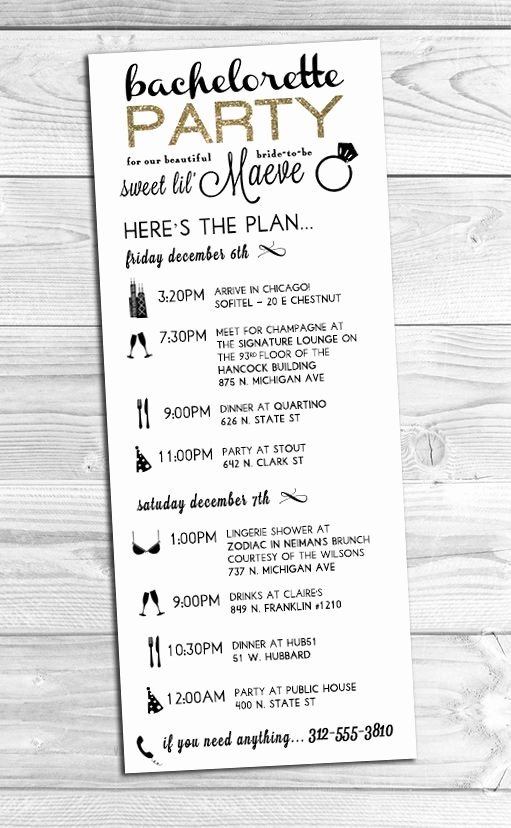 bachelorette
PARTY
for our beautiful bride-to-be
sweet lil' Maeve
HERE'S THE PLAN...
friday december 6th
3:20PM ARRIVE IN CHICAGO!
SOFITEL – 20 E CHESTNUT
7:30PM MEET FOR CHAMPAGNE AT
THE SIGNATURE LOUNGE ON
THE 93RD FLOOR OF THE
HANCOCK BUILDING
875 N. MICHIGAN AVE
9:00PM DINNER AT QUARTINO
626 N. STATE ST
11:00PM PARTY AT STOUT
642 N. CLARK ST
satuday december 7th
1:00PM LINGERIE SHOWER AT
ZODIAC IN NEIMANS BRUNCH
COURTESY OF THE WILSONS
737 N. MICHIGAN AVE
9:00PM DRINKS AT CLAIRE'S
849 N. FRANKLIN #1210
10:30PM DINNER AT HUB51
51 W. HUBBARD
12:00AM PARTY AT PUBLIC HOUSE
400 N. STATE ST
if you need anything... 312-555-3810